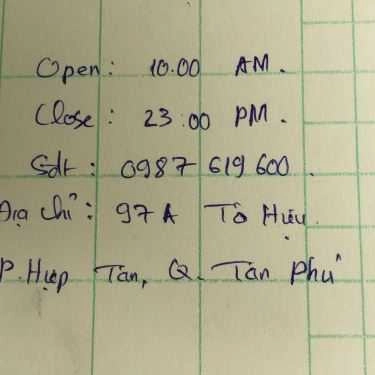 Open: 10.00 AM.
Close: 23:00 PM.
Sđt: 0987 619 600.
Địa chỉ: 97A Tô Hiệu.
P. Hiệp Tân, Q. Tân Phú